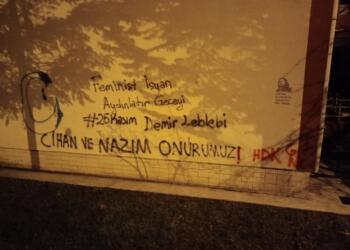 Feminist İsyan
Aydınlatır Geceyi
#25Kasım Demir Leblebi
CİHAN VE NAZIM ONURUMUZ! HDK